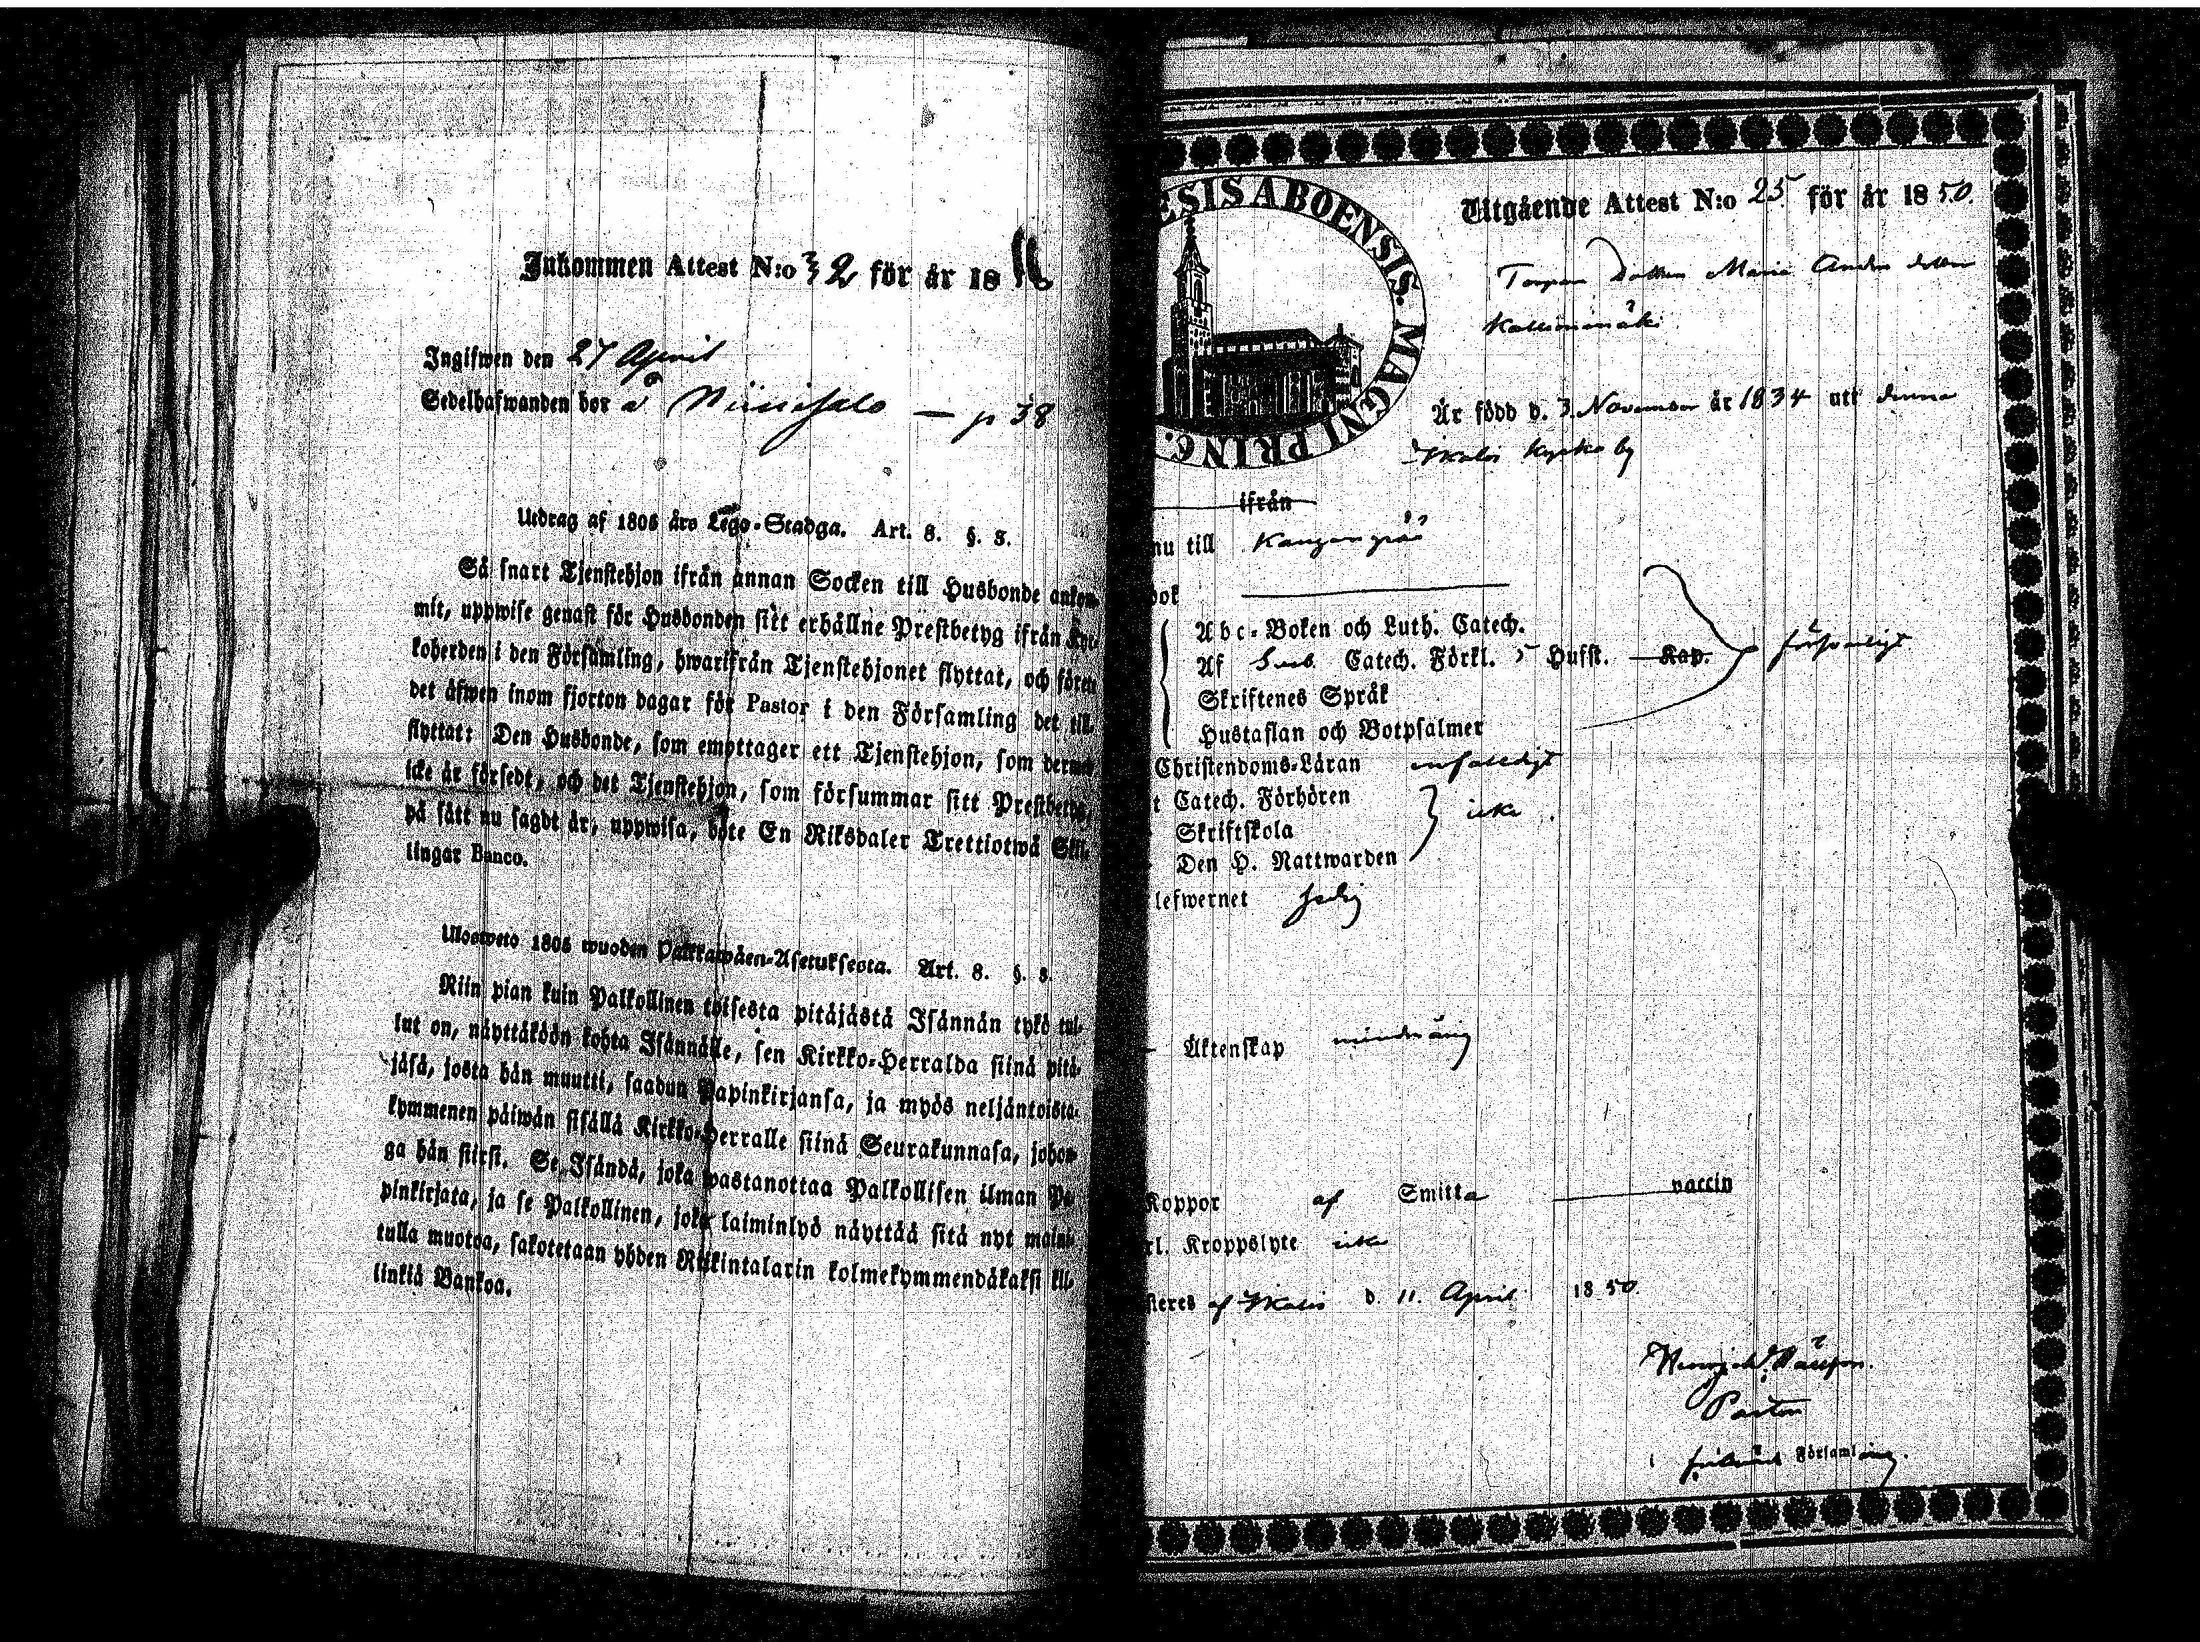 Inkommen Attest N:o 32 för år 18
Ingifwen den 27 April
Sedelhafwanden bor å Niinisalo — p 38
Utdrag af 1805 års Lego-Stadga. Art. 8. §. 8.
Så snart Tjenstehjon ifrån annan Socken till Husbonde ankom-
mit, uppwise genast för Husbonden sitt erhållne Prestbetyg ifrån Kyr-
koherden i den Församling, hwarifrån Tjenstehjonet flyttat, och förete
det äfwen inom fjorton dagar för Pastor i den Församling det till-
flyttat: Den Husbonde, som emottager ett Tjenstehjon, som dermed
icke är försedt, och det Tjenstehjon, som försummar sitt Prestbetyg,
på sätt nu sagdt är, uppwisa, böte En Riksdaler Trettiotwå Skil-
lingar Banco.
Ulosweto 1805 wuoden Palkkawäen-Asetuksesta. Art. 8. §. 8.
Niin pian kuin Palkollinen toisesta pitäjästä Isännän tykö tul-
lut on, näyttäköön kohta Isännälle, sen Kirkko-Herralda siinä pitä-
jäsä, josta hän muutti, saadun Papinkirjansa, ja myös neljäntoista-
kymmenen päiwän sisällä Kirkko-Herralle siinä Seurakunnasa, johon-
ga hän siirsi. Se Isändä, joka wastanottaa Palkollisen ilman Pa-
pinkirjata, ja se Palkollinen, joka laiminlyö näyttää sitä nyt maini-
tulla muotoa, sakotetaan yhden Riikintalarin kolmekymmendäkaksi kil-
linkiä Bankoa.
ESIS ABOENSIS. MAGNI PRINC.
Utgående Attest N:o 25 för år 1850.
Torpare Dottren Maria Anders dotter
Kallionmäki
Är född d. 3. November år 1834 uti denna
Ikalis Kyrko by
ifrån
nu till Kangonpää
bok
Abc-Boken och Luth. Catech.
Af Sveb. Catech. Förkl. 5 Hufst. Kap. försvarligt
Skriftenes Språk
Hustaflan och Botpsalmer
Christendoms-Läran enfaldigt
t Catech. Förhören
Skriftskola icke
Den H. Nattwarden
lefwernet sedig
Äktenskap minderårig
Koppor af Smitta vaccin
rl. Kroppslyte icke
steres af Ikalis d. 11. April 1850.
Pastor
i Församling.